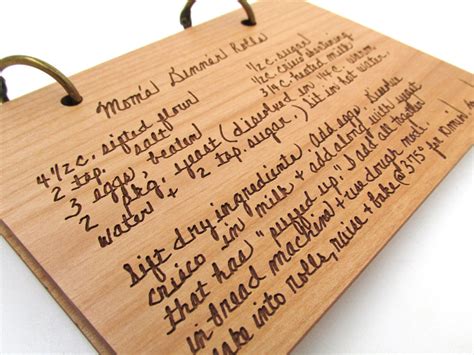 Mom's Dinner Rolls
4 1/2 c. sifted flour
2 tsp. salt
3 eggs, beaten
1/2 c. sugar
1/2 c. crisco shortening
3/4 c. heated milk
2 pkg. yeast (dissolved in 1/4 c. warm
water + 2 tsp. sugar.) sit in hot water.
Sift dry ingredients, add eggs. Dissolve
crisco in milk + add along with yeast
that has "puffed up". Add all together
in bread machine + use dough mode.
Make into rolls, raise + bake @ 375° for 10 min